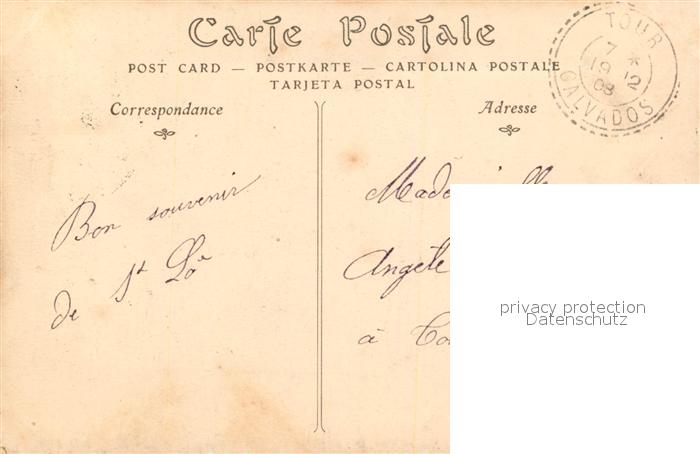 Carte Postale
POST CARD — POSTKARTE — CARTOLINA POSTALE
TARJETA POSTAL
Correspondance
Adresse
TOUR
7 *
19 12
08
CALVADOS
Bon souvenir
de St Lô
Made
Angele
à
privacy protection
Datenschutz